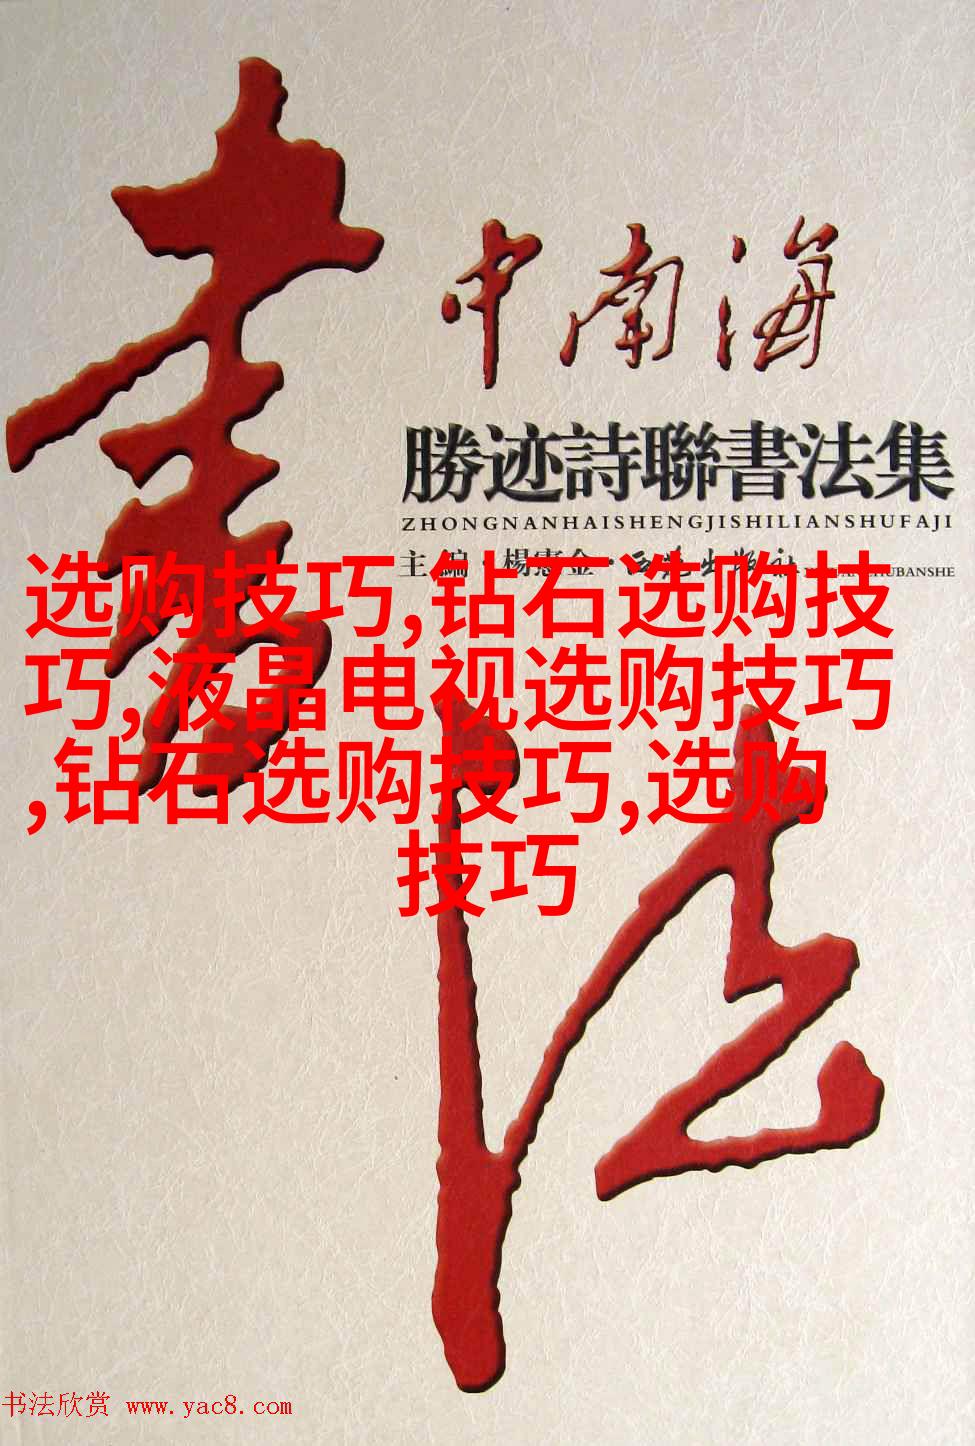 書法
中南海
勝迹詩聯書法集
ZHONGNANHAISHENGJISHILIANSHUFAJI
主編·楊憲金·西苑出版社
選购技巧,钻石选购技
巧,液晶电视选购技巧
,钻石选购技巧,选购
技巧
书法欣赏 www.yac8.com